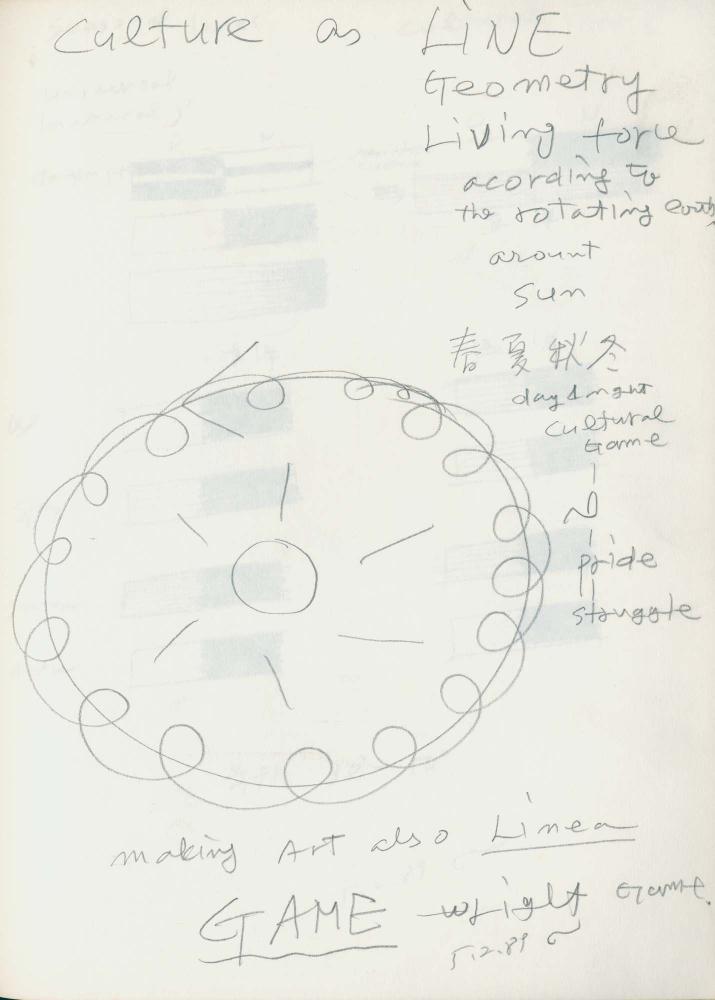 Culture as LiNE
Geometry
Living force
acording to
the rotating earth
arount
sun
春夏秋冬
day & night
cultural
Game
pride
struggle
making Art also Linea
GAME wright Game.
5.2.89